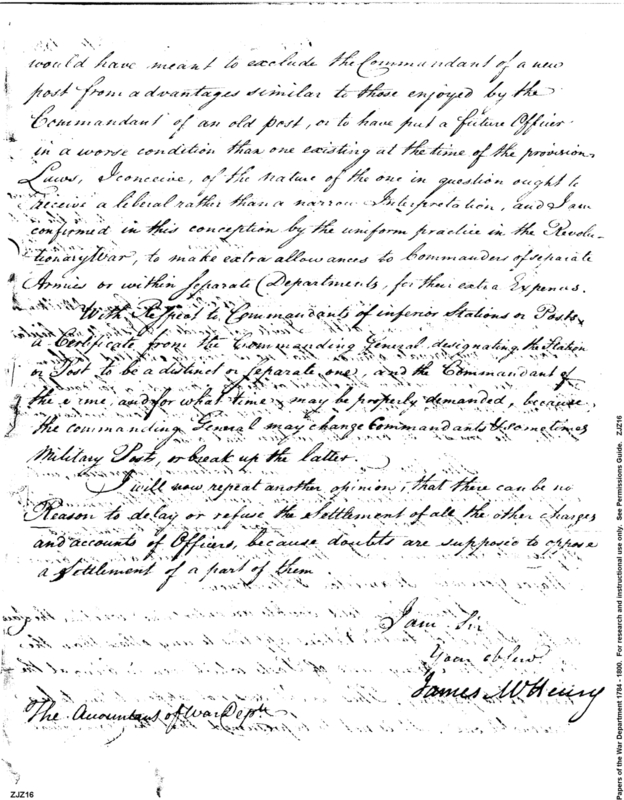 would have meant to exclude the Commandant of a new
post from advantages similar to those enjoyed by the
Commandant of an old post, or to have put a future Officer
in a worse condition than one existing at the time of the provision.
Laws, I conceive, of the nature of the one in question ought to
receive a liberal rather than a narrow Interpretation, and I am
confirmed in this conception by the uniform practice in the Revolu-
tionary War, to make extra allowances to Commanders of separate
Armies or within separate Departments, for their extra Expenses.
With Respect to Commandants of inferior Stations or Posts,
a Certificate from the Commanding General, designating the Station
or Post to be a distinct or separate one, and the Commandant of
the same, and for what time, may be properly demanded, because
the commanding General may change Commandants & sometimes
Military Posts, or break up the latter.
I will now repeat another opinion; that there can be no
Reason to delay or refuse the Settlement of all the other charges
and accounts of Officers, because doubts are supposed to oppose
a Settlement of a part of them.
I am Sir
Your ob Serv
James McHenry
The Accountant of War Dept.
ZJZ16
Papers of the War Department 1784 - 1800. For research and instructional use only. See Permissions Guide. ZJZ16